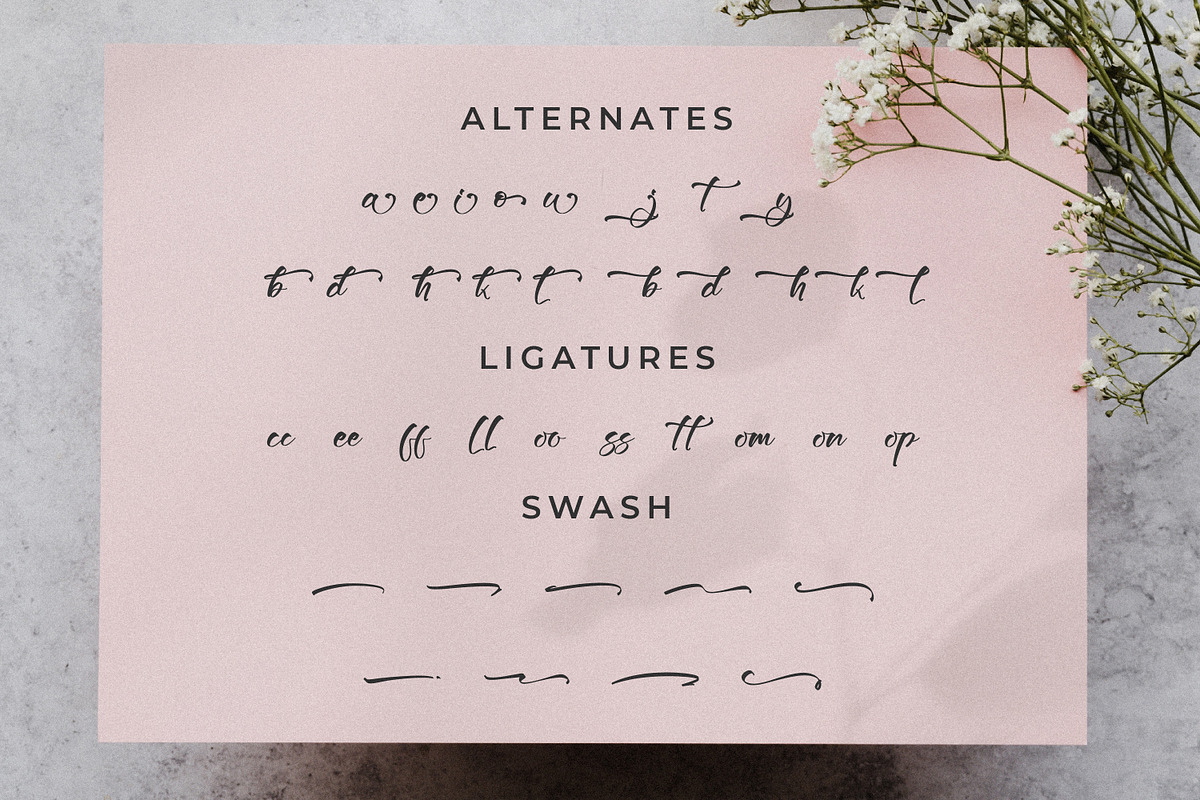 ALTERNATES
a e i o u j t y
b d h k l b d h k l
LIGATURES
cc ee ff ll oo ss tt om on op
SWASH